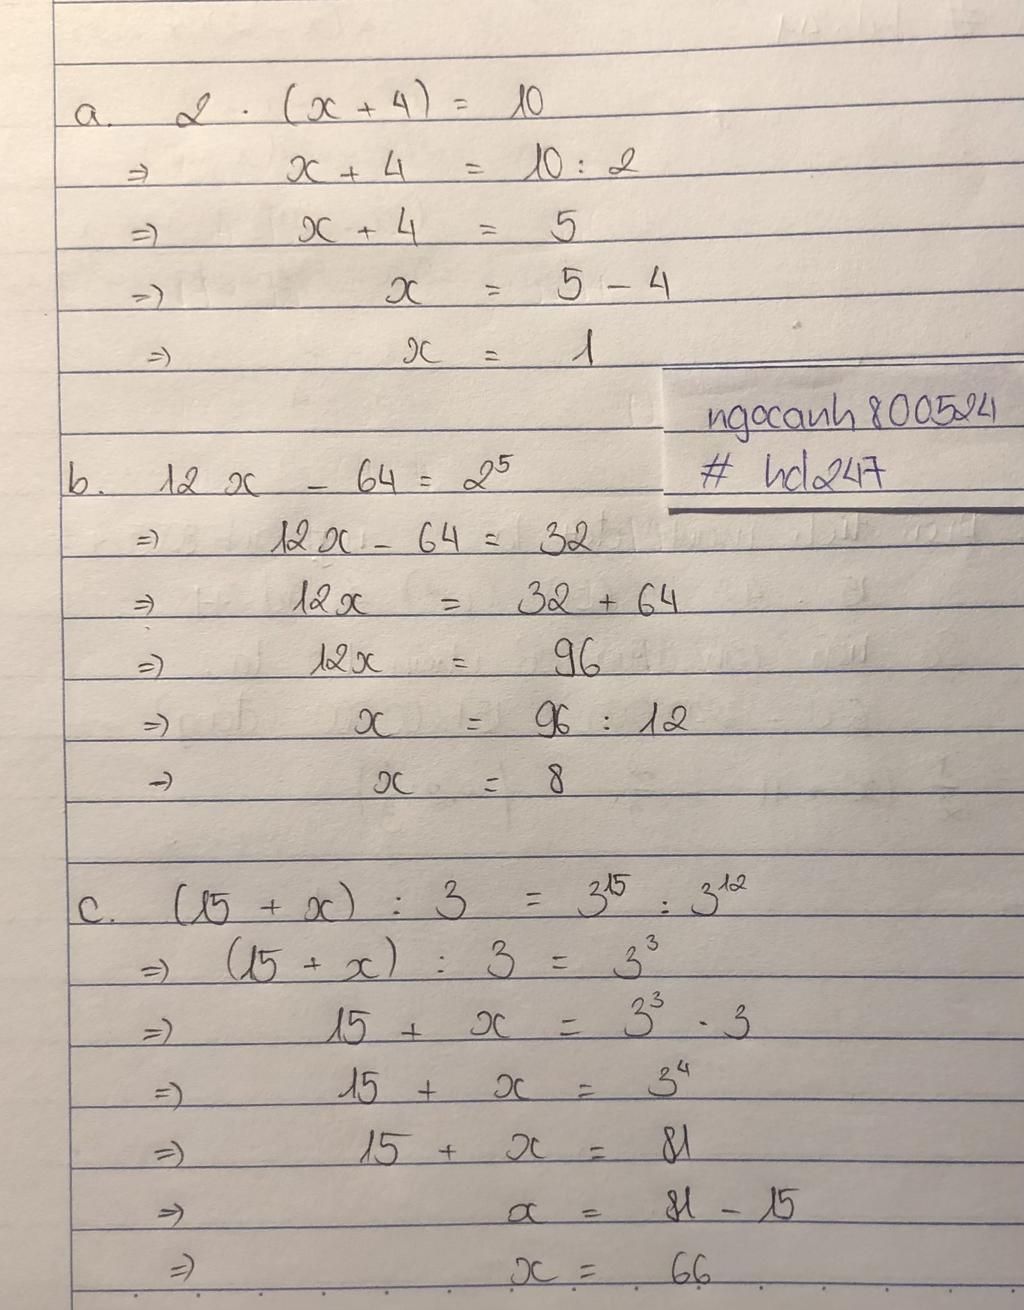 a. 2 . (x + 4) = 10
⇒ x + 4 = 10 : 2
⇒ x + 4 = 5
⇒ x = 5 - 4
⇒ x = 1
ngocanh800524
# hd247
b. 12x - 64 = 2⁵
⇒ 12x - 64 = 32
⇒ 12x = 32 + 64
⇒ 12x = 96
⇒ x = 96 : 12
⇒ x = 8
c. (15 + x) : 3 = 3¹⁵ : 3¹²
⇒ (15 + x) : 3 = 3³
⇒ 15 + x = 3³ . 3
⇒ 15 + x = 3⁴
⇒ 15 + x = 81
⇒ x = 81 - 15
⇒ x = 66